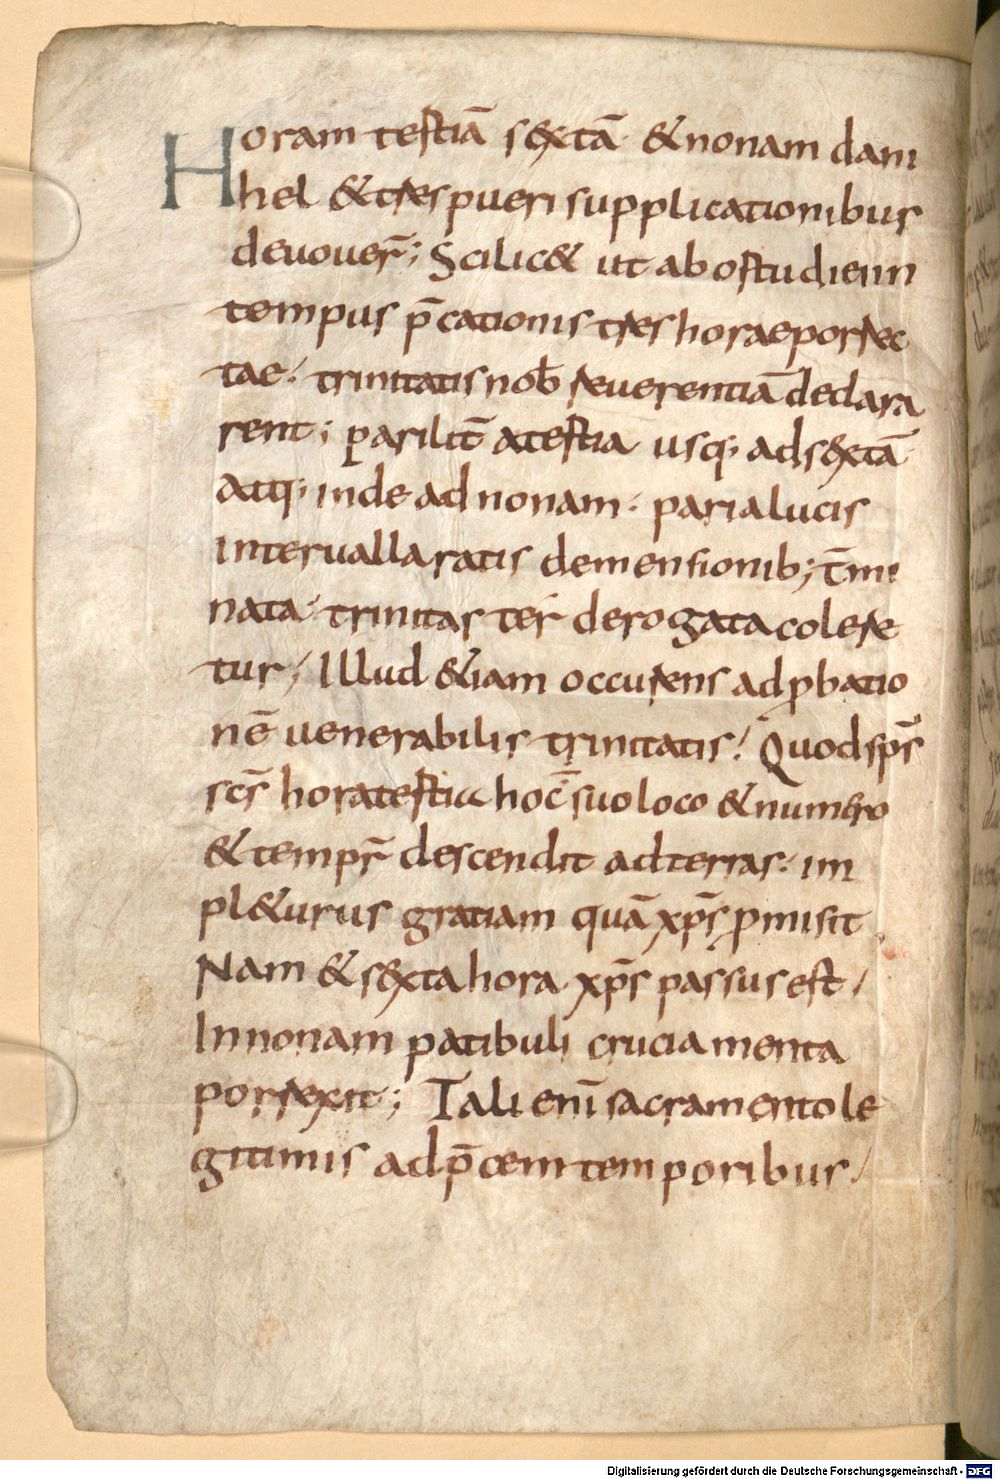 Horam tertiā sextā & nonam dani
hel & tres pueri supplicationibus
deuouer̄; Scilic& ut ab ostudiei in
tempus p̄cationis tres horae porrec
tae· trinitatis nob̄ reuerentiā declara
rent; parilit̄ a tertia usq; ad sextā
atq; inde ad nonam· paria lucis
interualla ratis demensionib; t̄mi
nata· trinitas ter derogata colere
tur/ Illud &iam occurens ad ꝓbatio
nē venerabilis trinitatis! Quod sp̄s
sc̄s hora tertia hoc̄ suo loco & numero
& tempr̄ descendit ad terras· im
pl&urus gratiam quā xp̄s ꝓmisit
Nam & sexta hora xp̄s passus est/
In nonam patibuli cruciamenta
porrexit; Tali enī sacramento le
gitimis ad p̄cem temporibus/
Digitalisierung gefördert durch die Deutsche Forschungsgemeinschaft - DFG